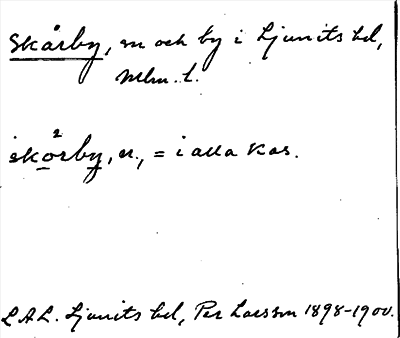 Skårby, sn och by i Ljunits hd,
Mlm. l.
skårby, n., = i alla kas.
L.A.L. Ljunits hd, Per Larsson 1898-1900.